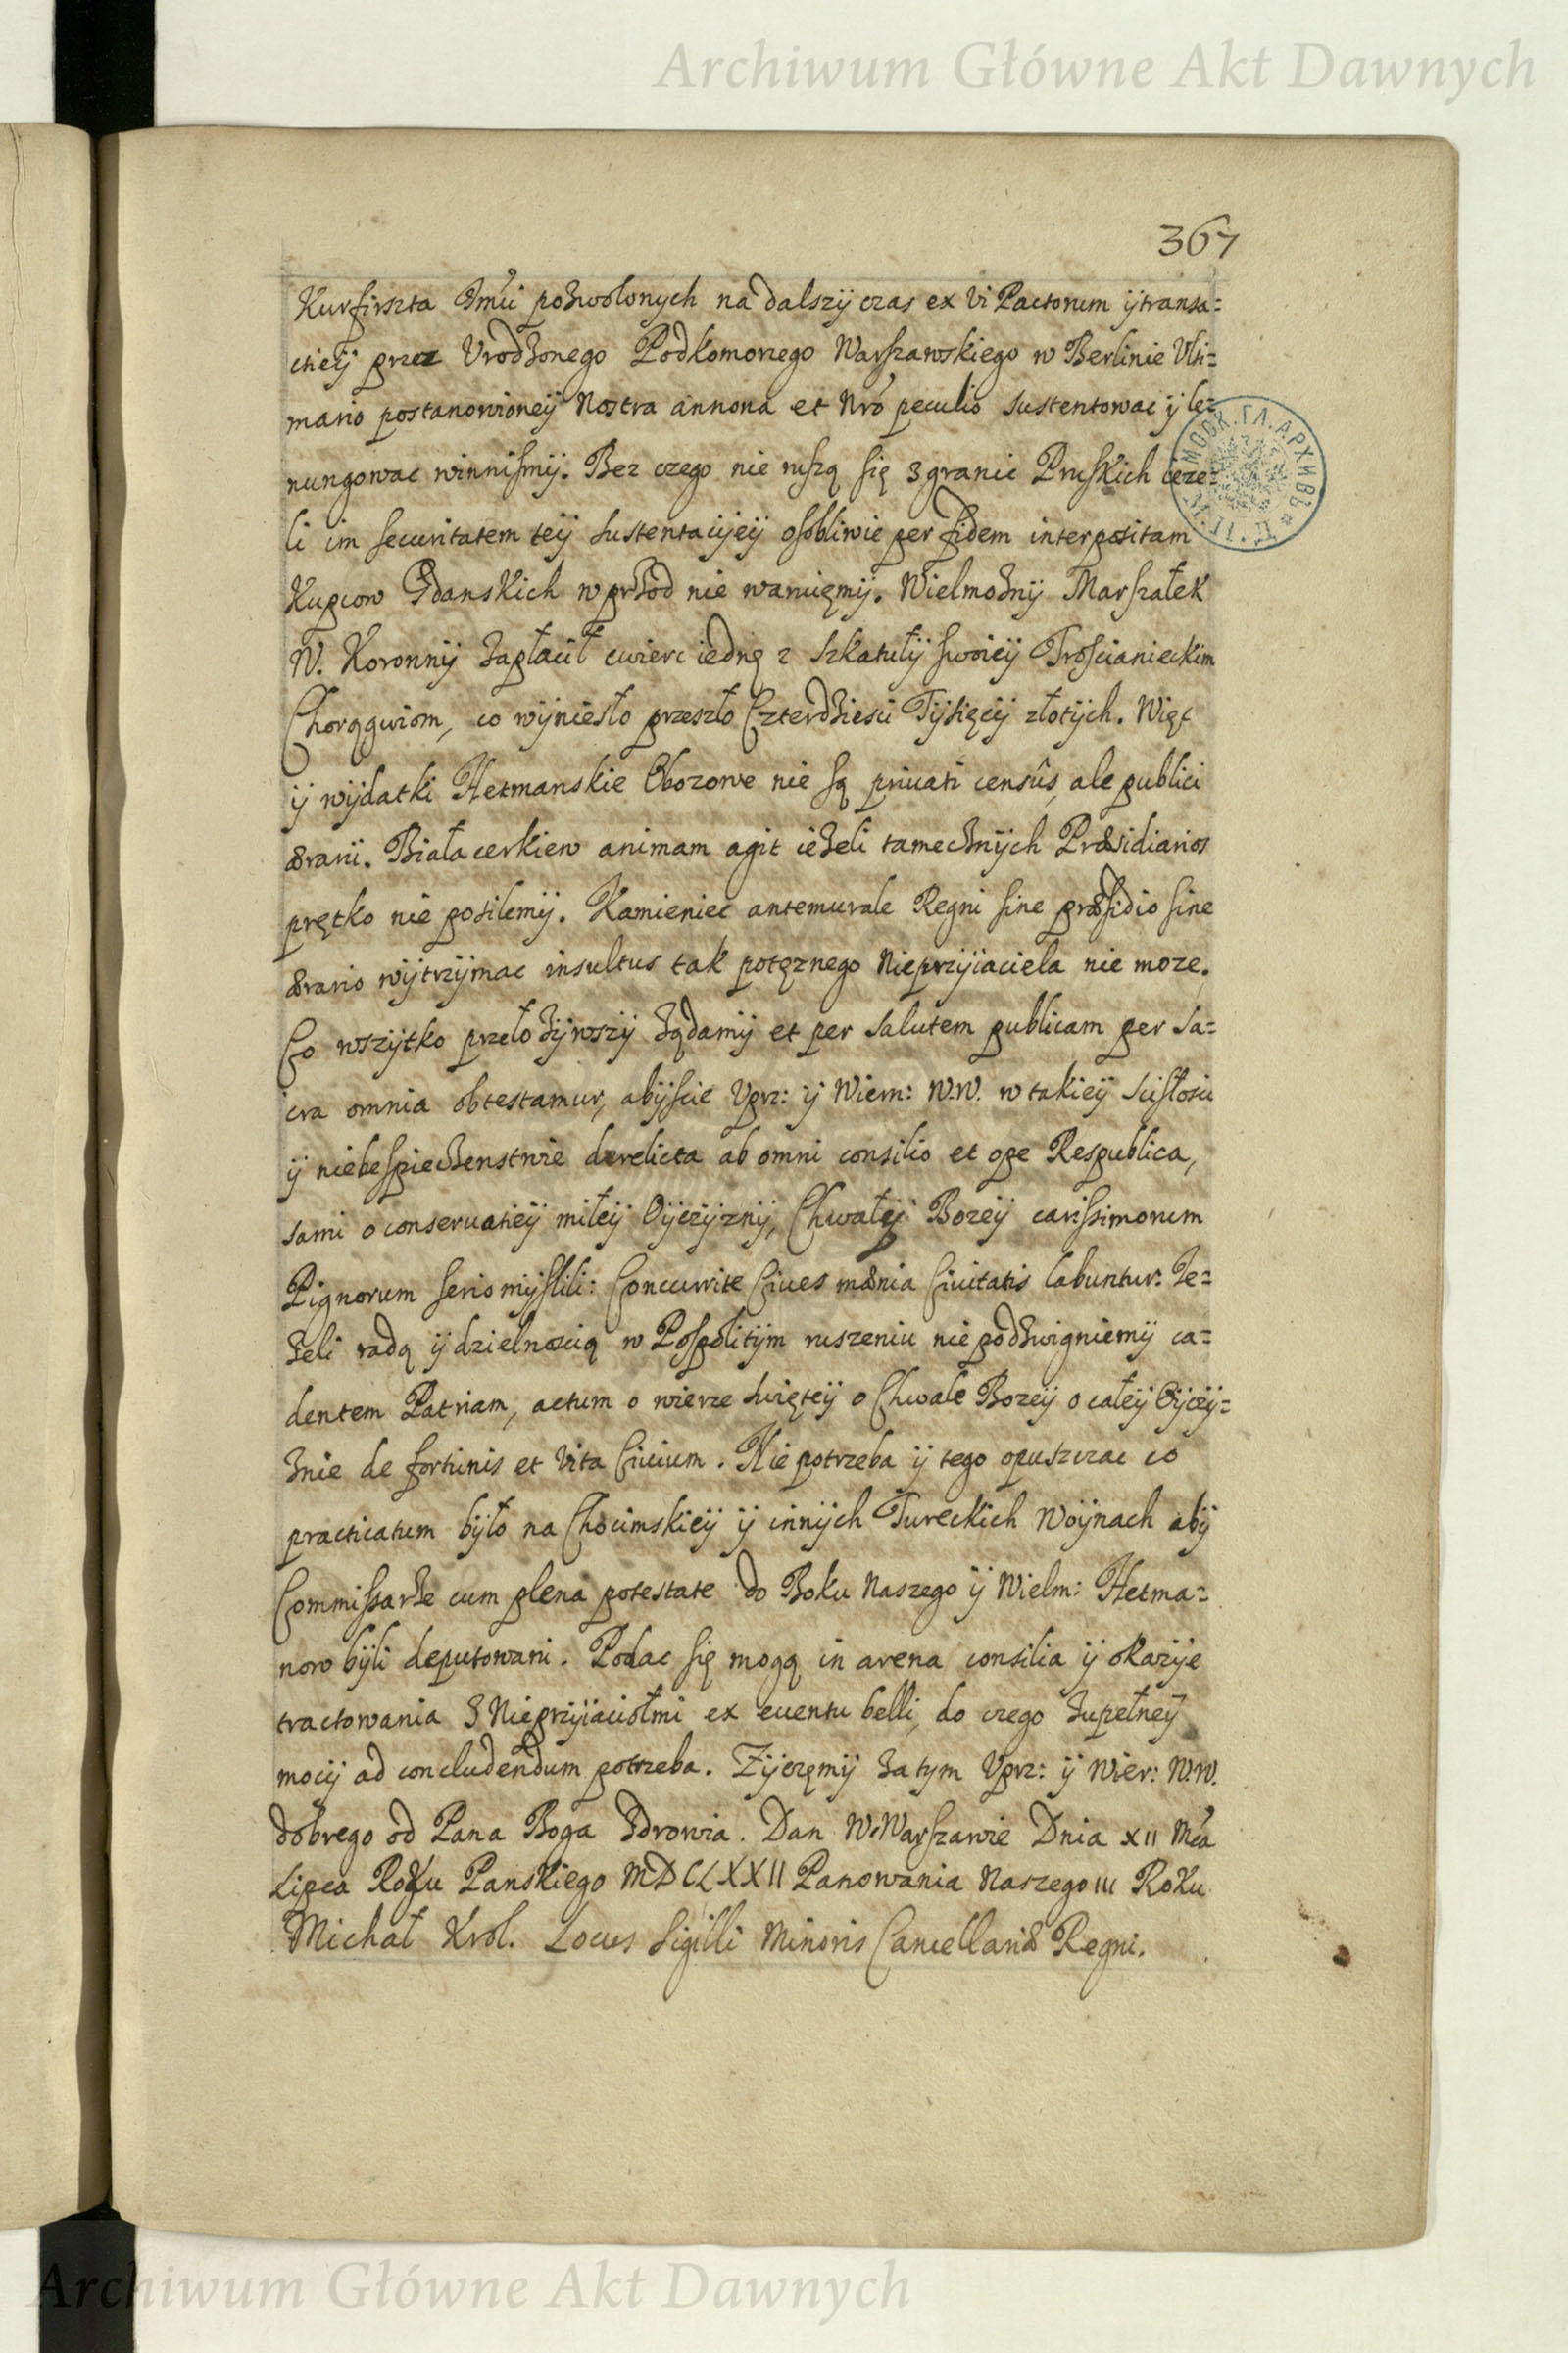 Archiwum Główne Akt Dawnych
367
Kurfirszta Jmći pozwolonych na dalszÿ czas ex vi Pactorum ÿ transa=
ctieÿ przez Vrodzonego Podkomorzego Warszawskiego w Berlinie Vlti=
mario postanowioneÿ Nostra annona et Nrō peculio sustentowac ÿ le=
nungowac winnismÿ. Bez czego nie ruszą się z granic Pruskich ieze=
li im securitatem teÿ sustentacÿeÿ osobliwie per fidem interpositam
Kupcow Gdanskich wprzod nie waruięmÿ. Wielmoznÿ Marszałek
W. Koronnÿ zapłacił cwierc iednę z Szkatułÿ swoieÿ Trościanieckim
Chorągwiom, co wÿniesło przeszło Czterdziesci Tÿsięcÿ złotÿch. Więc
ÿ wÿdatki Hetmanskie Obozowe nie są priuati censûs, ale publici
ærarii. Białacerkiew animam agit iezeli tamecznÿch Præsidiarios
prętko nie posilemÿ. Kamieniec antemurale Regni sine præsidio sine
ærario wÿtrzÿmac insultus tak potęznego Nieprzÿiaciela nie moze.
Co wszÿtko przełozÿwszÿ ządamÿ et per salutem publicam per sa=
cra omnia obtestamur, abÿscie Vprz: ÿ Wiern: W.W. w takieÿ scisłosci
ÿ niebespieczenstwie derelicta ab omni consilio et ope Respublica,
sami o conseruatieÿ miłeÿ Oÿczÿznÿ, Chwałÿ Bozeÿ carissimorum
Pignorum serio mÿslili: Concurrite Ciues mænia Ciuitatis labuntur. Je=
zeli radą ÿ dzielnoscią w Pospolitÿm ruszeniu nie podzwigniemÿ ca=
dentem Patriam, actum o wierze swięteÿ o Chwale Bozeÿ o całeÿ Oÿczÿ=
znie de fortunis et vita Ciuium. Nie potrzeba ÿ tego opuszczac co
practicatum bÿło na Chocimskieÿ ÿ innÿch Tureckich Woÿnach abÿ
Commissarze cum plena potestate do Boku Naszego ÿ Wielm: Hetma=
now bÿli deputowani. Podac się mogą in arena consilia ÿ okazÿe
tractowania z Nieprzÿiaciołmi ex euentu belli, do czego zupełneÿ
mocÿ ad concludendum potrzeba. Zÿczęmÿ zatym Vprz: ÿ Wier: W.W.
dobrego od Pana Boga zdrowia. Dan W Warszawie Dnia XII Mca
Lipca Roku Panskiego MDCLXXII Panowania Naszego III Roku
Michał Krol. Locus Sigilli Minoris Cancellariæ Regni.
Archiwum Główne Akt Dawnych